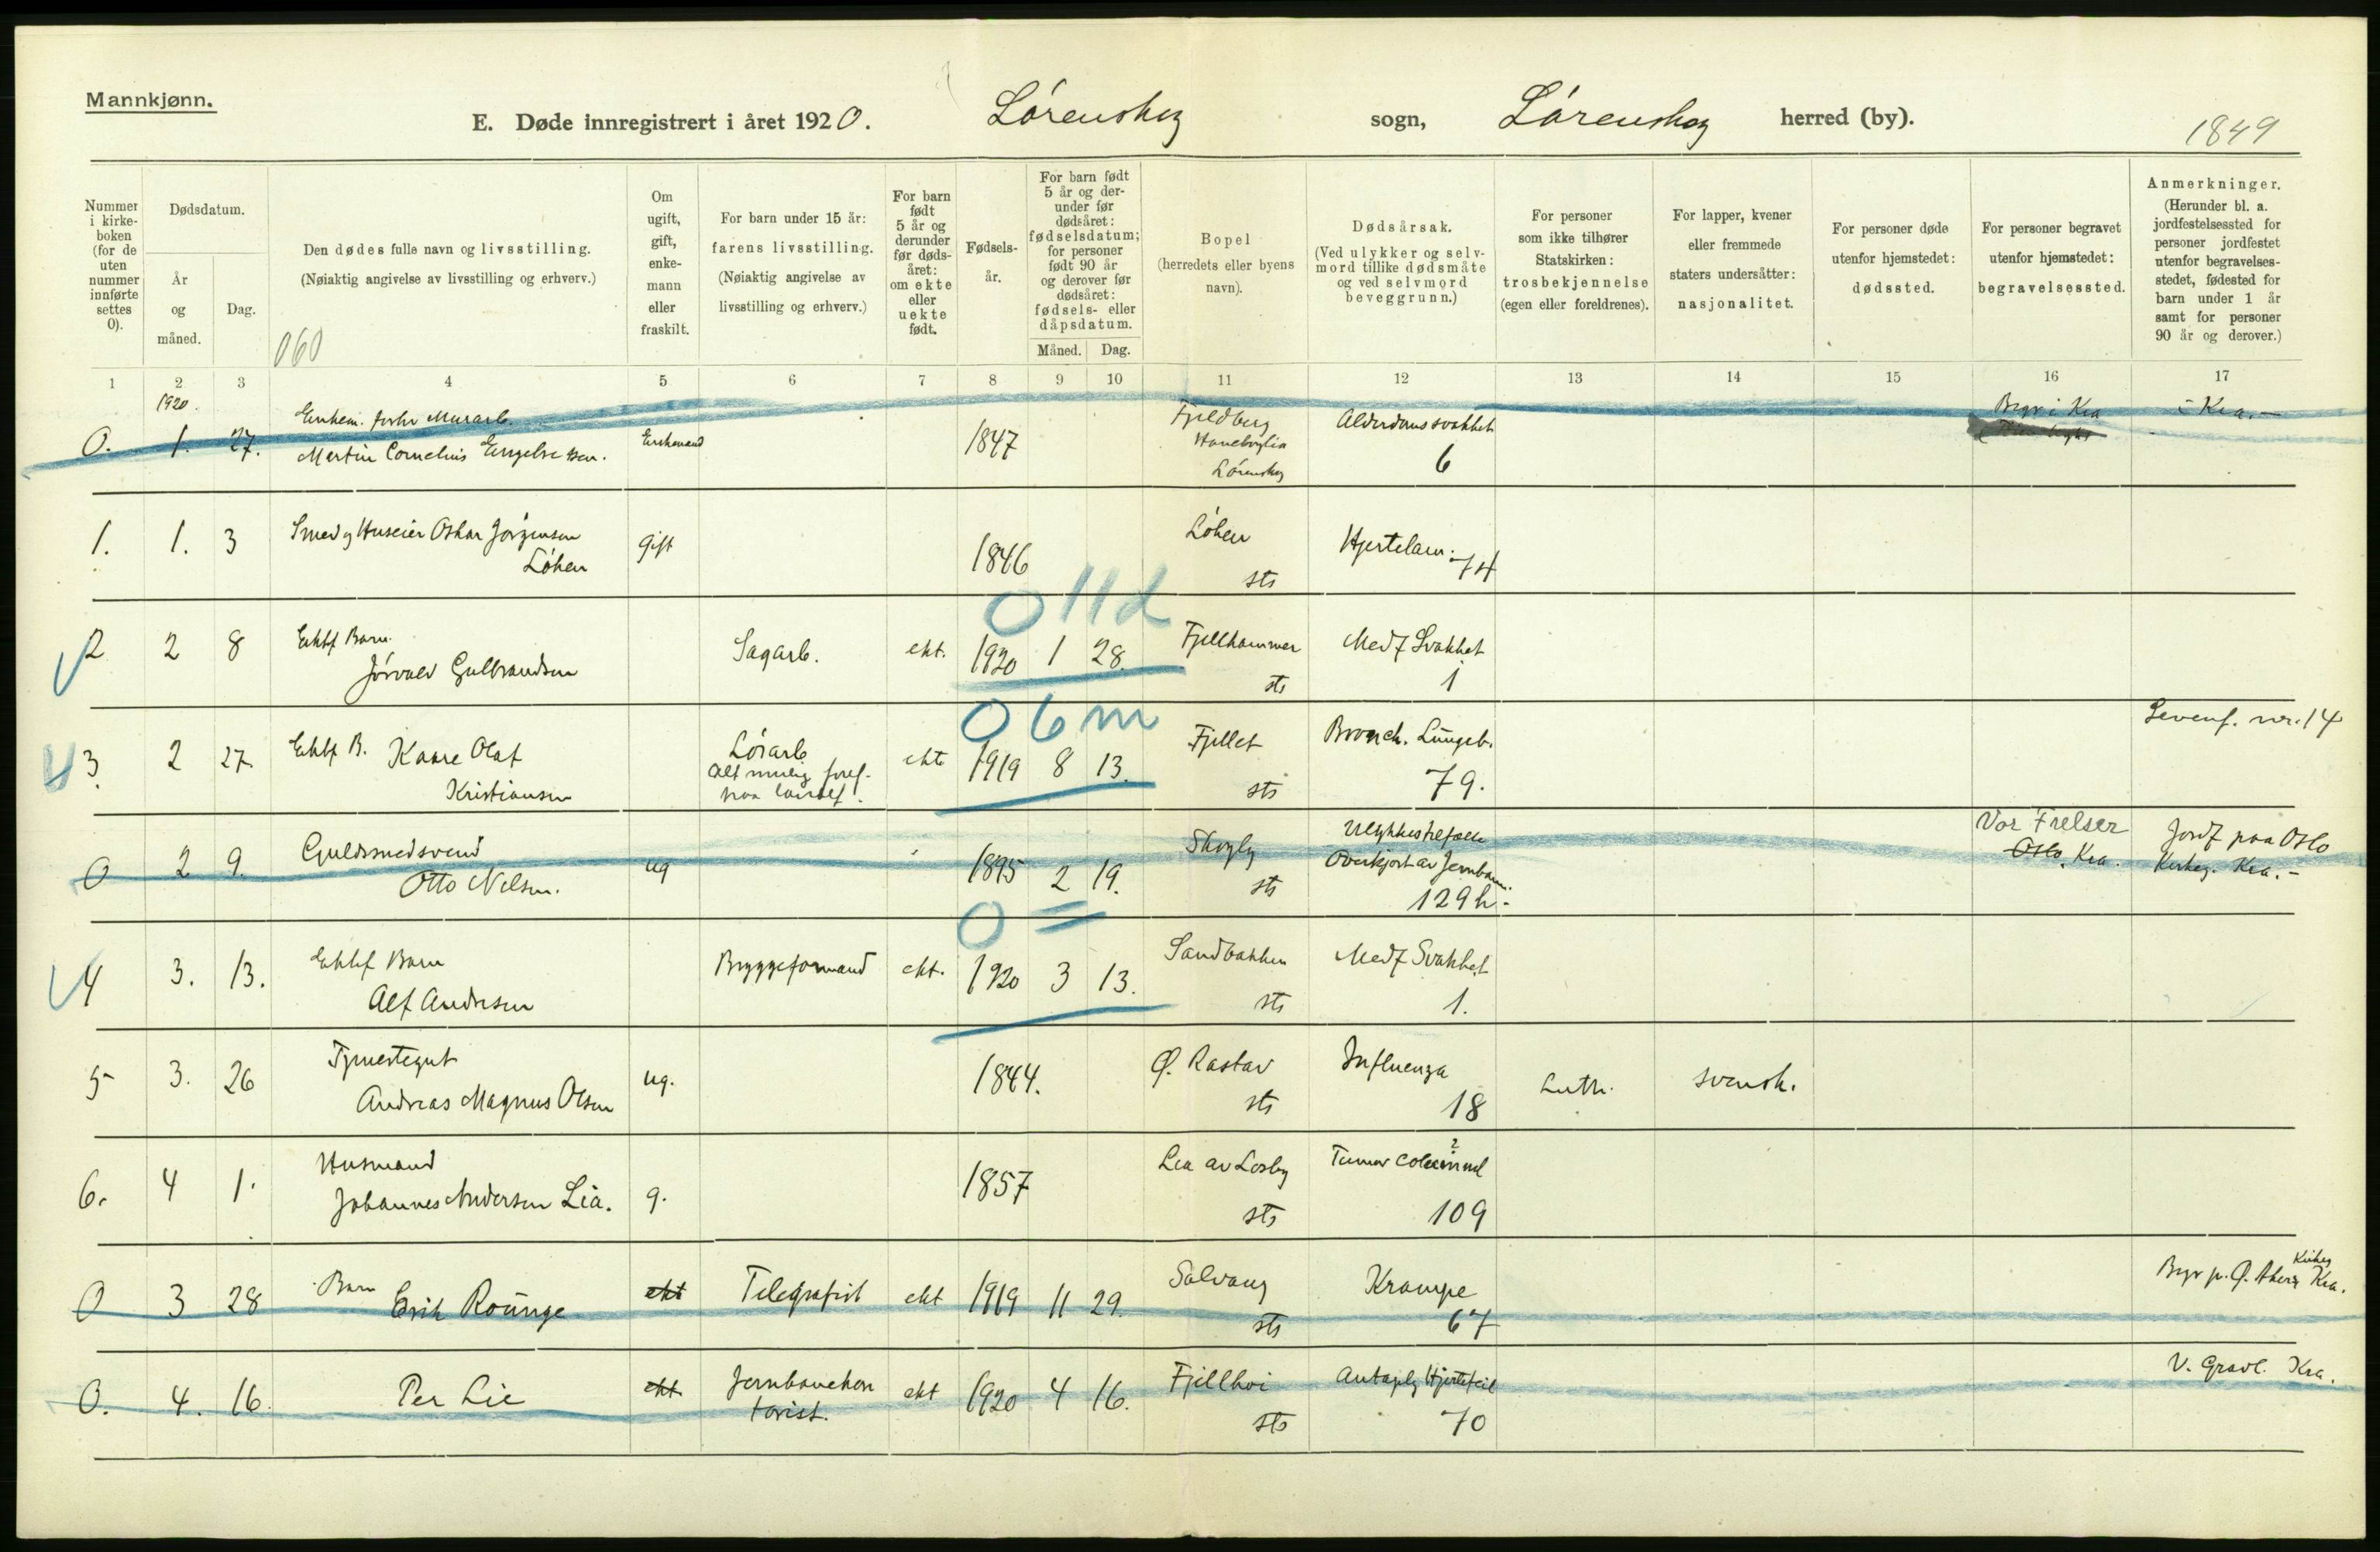 Mannkjønn.
E. Døde innregistrert i året 1920. Lørenskog sogn, Lørenskog herred (by).
1849
Nummer i kirke-boken (for de uten nummer innførte settes 0).
Dødsdatum.
År og måned.
Dag.
Den dødes fulle navn og livsstilling.
(Nøiaktig angivelse av livsstilling og erhverv.)
060
Om ugift, gift, enke-mann eller fraskilt.
For barn under 15 år:
farens livsstilling.
(Nøiaktig angivelse av livsstilling og erhverv.)
For barn født 5 år og derunder før døds-året: om ekte eller uekte født.
Fødsels-år.
For barn født 5 år og der-under før dødsåret: fødselsdatum; for personer født 90 år og derover før dødsåret: fødsels- eller dåpsdatum.
Måned. Dag.
Bopel
(herredets eller byens navn).
Dødsårsak.
(Ved ulykker og selv-mord tillike dødsmåte og ved selvmord beveggrunn.)
For personer som ikke tilhører Statskirken: trosbekjennelse (egen eller foreldrenes).
For lapper, kvener eller fremmede staters undersåtter: nasjonalitet.
For personer døde utenfor hjemstedet: dødssted.
For personer begravet utenfor hjemstedet: begravelsessted.
Anmerkninger.
(Herunder bl. a. jordfestelsessted for personer jordfestet utenfor begravelses-stedet, fødested for barn under 1 år samt for personer 90 år og derover.)
1 2 3 4 5 6 7 8 9 10 11 12 13 14 15 16 17
1920.
Enkem. Murarb. Fjeldberg Alderdomssvakhet Begr i Kra - Kra. -
0. 1. 27. Martin Cornelius Engebretsen. Enkemand 1847 Haneborglia
Lørenskog 6
1. 1. 3 Smed og Huseier Oskar Jørgensen Gift 1846 Løken Hjertelam.
Løken sts 74
011d
2 2 8 Ektef Barn Sagarb. ekt. 1920 1 28. Fjellhammer Medf Svakhet
Jørvald Gulbrandsen sts 1
06m
3. 2 27 Ektef B. Kaare Olaf Løsarb ekte 1919 8 13. Fjellet Bronch. Lungeb. Levenf. nr. 14
Kristiansen sts 79.
0 2 9. Guldsmedsvend ug 1895 2 19. Skogly Ulykkestilfælde Vor Frelser Jordf paa Oslo
Otto Nelsen. sts Overkjørt av Jernbanen. Oslo, Kra. Kirkeg. Kra. -
129h.
0 =
4 3. 13. Ektef Barn Bryggeformand ekt. 1920 3 13. Sandbakken Medf Svakhet
Alf Andresen sts 1.
5 3. 26 Tjenestegut ug. 1844. Ø. Rastav Influenza Luth. svensk.
Andreas Magnus Olsen sts 18
6. 4 1. Husmand g. 1857 Lia av Losby Tumor
Johannes Andersen Lia. sts 109
0 3 28 Barn ekt Telegrafist ekt 1919 11 29. Solvang Krampe Begr p. Ø. Akers Kirkeg Kra.
Erik Rounge sts 67
0. 4. 16. Per Lie ekt Jernbanekon ekt 1920 4 16. Fjellhøi Hjertefeil V. Gravl. Kra.
torist. sts 70